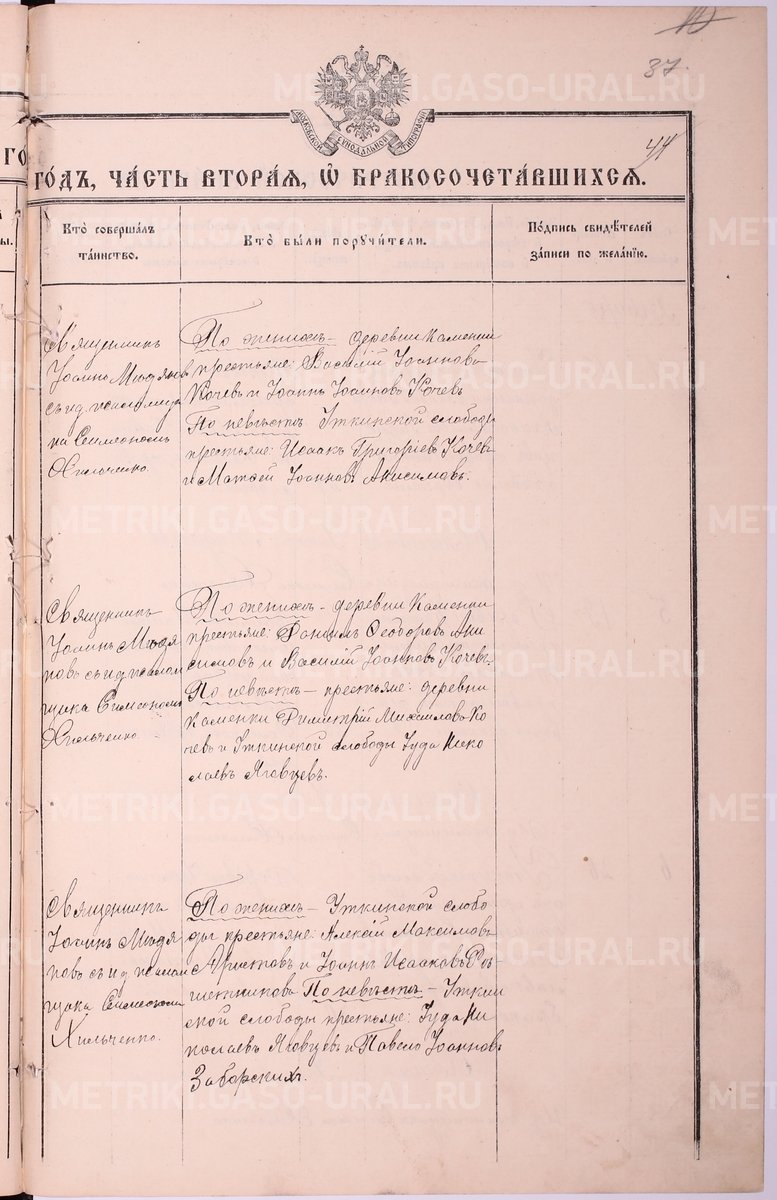 37.
44
МОСКОВСКОЙ СѴНОДАЛЬНОЙ ТИПОГРАФІИ
ГО́ДЪ, ЧА́СТЬ ВТОРА́Я, Ѡ҆ БРАКОСОЧЕТА́ВШИХСЯ.
Кто̀ соверша́лъ
та́инство.
Кто̀ бы́ли поручи́тели.
По́дпись свидѣ́телей
за́писи по жела́нїю.
Священникъ
Іоаннъ Мѣдяковъ
съ и.д. псаломщи
ка Симеономъ
Хильченко.
По женихѣ – деревни Каменки
крестьяне: Василій Іоанновъ
Кочевъ и Іоаннъ Іоанновъ Кочевъ
По невѣстѣ: Уткинской слободы
крестьяне: Исаакъ Григоріевъ Кочевъ
и Матѳей Іоанновъ Анисимовъ.
Священникъ
Іоаннъ Мѣдя
ковъ съ и.д. псалом
щика Симеономъ
Хильченко.
По женихѣ – деревни Каменки
крестьяне: Ѳеодоровъ Ани
симовъ и Василій Іоанновъ Кочевъ.
По невѣстѣ – крестьяне: деревни
Каменки Димитрій Михаиловъ Ко
чевъ и Уткинской слободы Іуда Нико
лаевъ Яговцевъ.
Священникъ
Іоаннъ Мѣдя
ковъ съ и.д. псалом
щика Симеономъ
Хильченко.
По женихѣ – Уткинской слобо
ды крестьяне: Алексій Максимовъ
Аристовъ и Іоаннъ Исааковъ Рѣ
шетниковъ По невѣстѣ – Уткин
ской слободы крестьяне: Іуда Ни
колаевъ Яговцевъ и Павелъ Іоанновъ
Заборскихъ.
METRIKI.GASO-URAL.RU